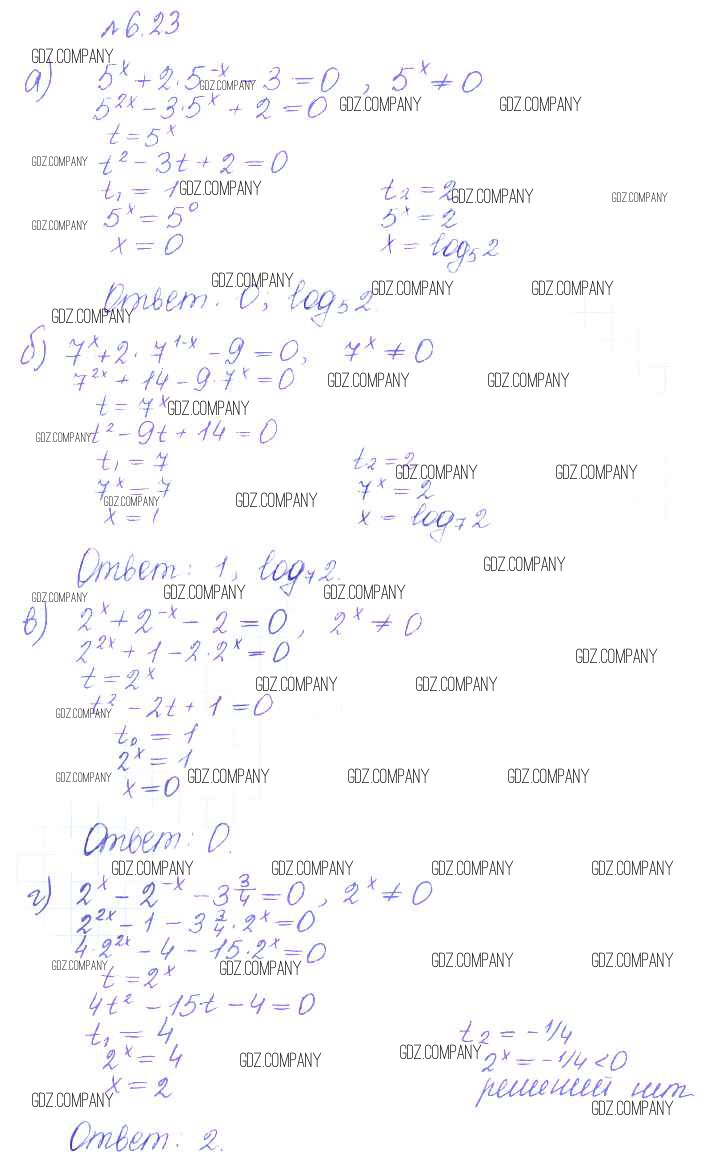 №6.23
GDZ.COMPANY
а) 5^x + 2·5^{-x} - 3 = 0, 5^x ≠ 0 GDZ.COMPANY
5^{2x} - 3·5^x + 2 = 0 GDZ.COMPANY GDZ.COMPANY
t = 5^x
GDZ.COMPANY t² - 3t + 2 = 0
t₁ = 1 GDZ.COMPANY t₂ = 2 GDZ.COMPANY GDZ.COMPANY
GDZ.COMPANY 5^x = 5^0 5^x = 2
x = 0 x = log₅2
GDZ.COMPANY GDZ.COMPANY GDZ.COMPANY
Ответ: 0; log₅2.
GDZ.COMPANY
б) 7^x + 2·7^{1-x} - 9 = 0, 7^x ≠ 0
7^{2x} + 14 - 9·7^x = 0 GDZ.COMPANY GDZ.COMPANY
t = 7^x GDZ.COMPANY
GDZ.COMPANY t² - 9t + 14 = 0
t₁ = 7 t₂ = 2 GDZ.COMPANY GDZ.COMPANY
7^x = 7 GDZ.COMPANY GDZ.COMPANY 7^x = 2
x = 1 x = log₇2
Ответ: 1, log₇2. GDZ.COMPANY
GDZ.COMPANY GDZ.COMPANY GDZ.COMPANY
в) 2^x + 2^{-x} - 2 = 0, 2^x ≠ 0
2^{2x} + 1 - 2·2^x = 0 GDZ.COMPANY
t = 2^x GDZ.COMPANY GDZ.COMPANY
GDZ.COMPANY t² - 2t + 1 = 0
t₀ = 1
2^x = 1
GDZ.COMPANY x = 0 GDZ.COMPANY GDZ.COMPANY GDZ.COMPANY
Ответ: 0.
GDZ.COMPANY GDZ.COMPANY GDZ.COMPANY GDZ.COMPANY
г) 2^x - 2^{-x} - 3 3/4 = 0, 2^x ≠ 0
2^{2x} - 1 - 3 3/4·2^x = 0
4·2^{2x} - 4 - 15·2^x = 0 GDZ.COMPANY GDZ.COMPANY
GDZ.COMPANY t = 2^x GDZ.COMPANY
4t² - 15t - 4 = 0
t₁ = 4 t₂ = -1/4
2^x = 4 GDZ.COMPANY GDZ.COMPANY 2^x = -1/4 < 0
x = 2 решений нет
GDZ.COMPANY GDZ.COMPANY
Ответ: 2.